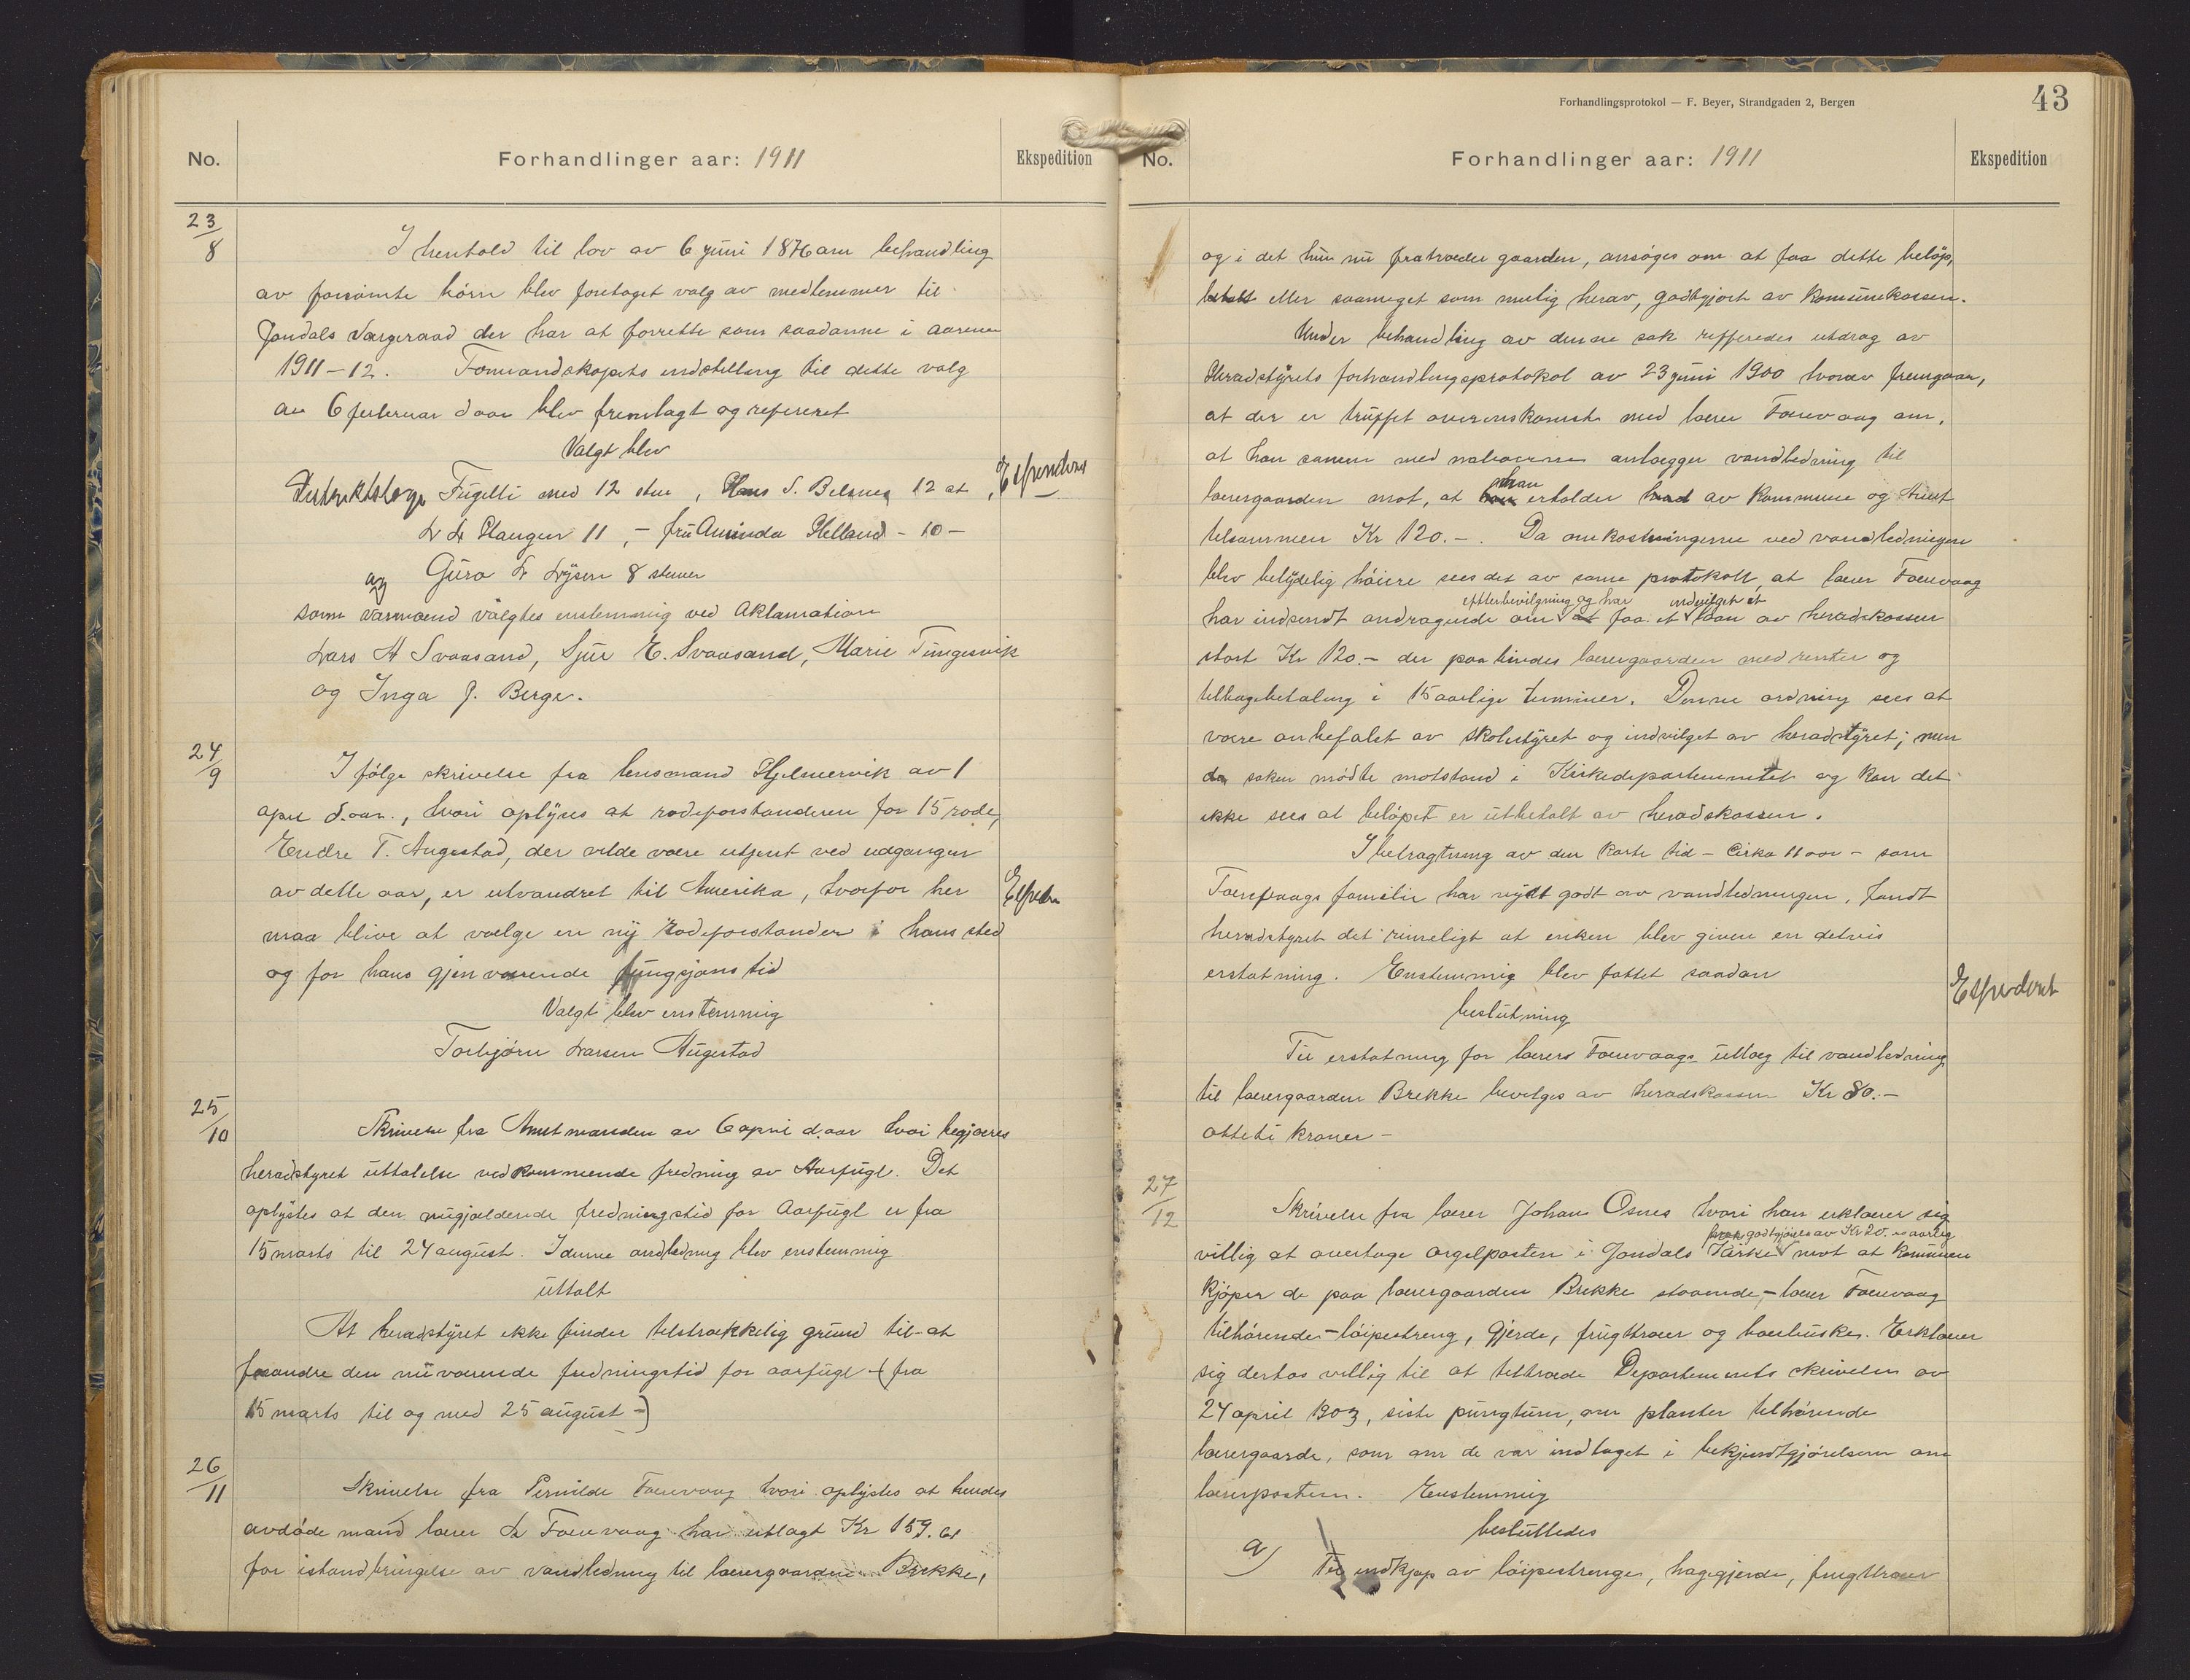 No.
Forhandlinger aar: 1911
Ekspedition
23/8
I henhold til lov av 6 juni 1896 om behandling
av forsømte børn blev foretaget valg av medlemmer til
Jondals Værgeraad der har at forrette som saadanne i aarene
1911-12. Formandskapets indstilling til dette valg
av 6 februar d aar blev fremlagt og refereret
Valgt blev
Distriktslæge Fugelli med 12 stm, Hans S. Belsnes 12 st,
L L Haugen 11, - fru Aminda Helland - 10 -
og Guro L Lysen 8 stemer
Ekspederes
som varmænd valgtes enstemmig ved Aklamation
Lars H Svaasand, Sjur E. Svaasand, Marie Tungesvik
og Inga J. Berge.
24/9
I følge skrivelse fra lensmand Hjelmervik av 1
april d.aar., hvori oplyses at rodeforstanderen for 15 rode,
Endre T. Augestad, der vilde være utjent ved udgangen
av dette aar, er utvandret til Amerika, hvorfor her
maa blive at vælge en ny rodeforstander i hans sted
og for hans gjenværende fungsjons tid
Valgt blev enstemmig
Torbjørn Larsen Augestad
25/10
Skrivelse fra Amtmanden av 6 april d.aar hvori begjæres
heradstyret uttalelse vedkommende fredning av Aarfugl. Det
oplystes at den nugjældende fredningstid for Aarfugl er fra
15 marts til 24 august. I denne andledning blev enstemmig
uttalt
At heradstyret ikke finder tilstrækkelig grund til at
forandre den nuværende fredningstid for aarfugl - (fra
15 marts til og med 25 august -)
26/11
Skrivelse fra Pernilde Fonevaag hvori oplystes at hendes
avdøde mand lærer L Fonevaag har utlagt Kr 159.61
for istandbringelse av vandledning til lærergaarden Brekke,
Forhandlingsprotokol — F. Beyer, Strandgaden 2, Bergen
43
No.
Forhandlinger aar: 1911
Ekspedition
og i det hun nu fratræder gaarden, ansøges om at faa dette beløp,
betalt eller saameget som mulig herav, godtgjort av Komunekassen.
Under behandling av denne sak refferedes utdrag av
Heradstyrets forhandlingsprotokol av 23 juni 1900 hvorav fremgaar,
at der er truffet overenskomst med lærer Fonevaag om,
at han sammen med naboerne anlægger vandledning til
lærergaarden mot, at han erholder av Kommune og Amt
tilsammen Kr 120.-. Da omkostningerne ved vandledningen
blev betydelig høiere sees det av same protokoll, at lærer Fonevaag
efterbevilgning og har indvilget et
har indsendt andragende om at faa et laan av heradskassen
stort Kr 120.- der paa bindes lærergaarden med renter og
tilbagebetaling i 15 aarlige terminer. Denne ordning sees at
være anbefalet av skolestyret og indvilget av heradstyret; men
da saken mødte motstand i Kirkedepartementet og kan det
ikke sees at beløpet er utbetalt av heradskassen.
I betragtning av den korte tid - Cirka 11 aar - som
Fonevaags familie har nydt godt av vandledningen, fandt
heradstyret det rimeligt at enken blev given en delvis
erstatning. Enstemmig blev fattet saadan
Ekspederet
beslutning
Til erstatning for lærers Fonevaags utlæg til vandledning
til lærergaarden Brekke bevilges av heradskassen Kr 80.-
otteti kroner -
27/12
Skrivelse fra lærer Johan Osnes hvori han erklærer sig
godtgjørelse av Kr 20.- aarlig
villig at overtage orgelposten i Jondals Kirke mot at Komunen
kjøper de paa lærergaarden Brekke staaende, - lærer Fonevaag
tilhørende - løipestreng, gjerde, frugttræer og bærbuske. Erklærer
sig derhos villig til at tiltræde Departements skrivelse av
24 april 1903, siste pungtum, om planter tilhørende
lærergaarde, som om de var indtaget i bekjendtgjørelsen om
lærerposten. Enstemmig
besluttedes
a) Til indkjøp av løipestrenge, hagegjerde, frugttræer